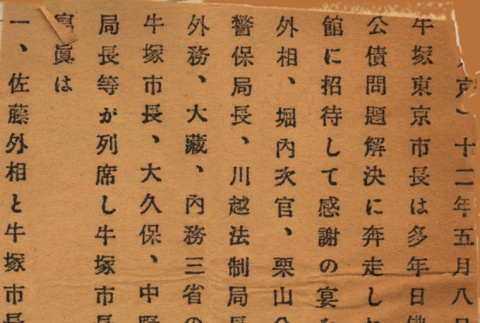 京）十二年五月八日
牛塚東京市長は多年日佛
公債問題解決に奔走した
館に招待して感謝の宴を
外相、堀內次官、栗山公
警保局長、川越法制局長
外務、大藏、內務三省の
牛塚市長、大久保、中野
局長等が列席し牛塚市長
寫眞は
一、佐藤外相と牛塚市長